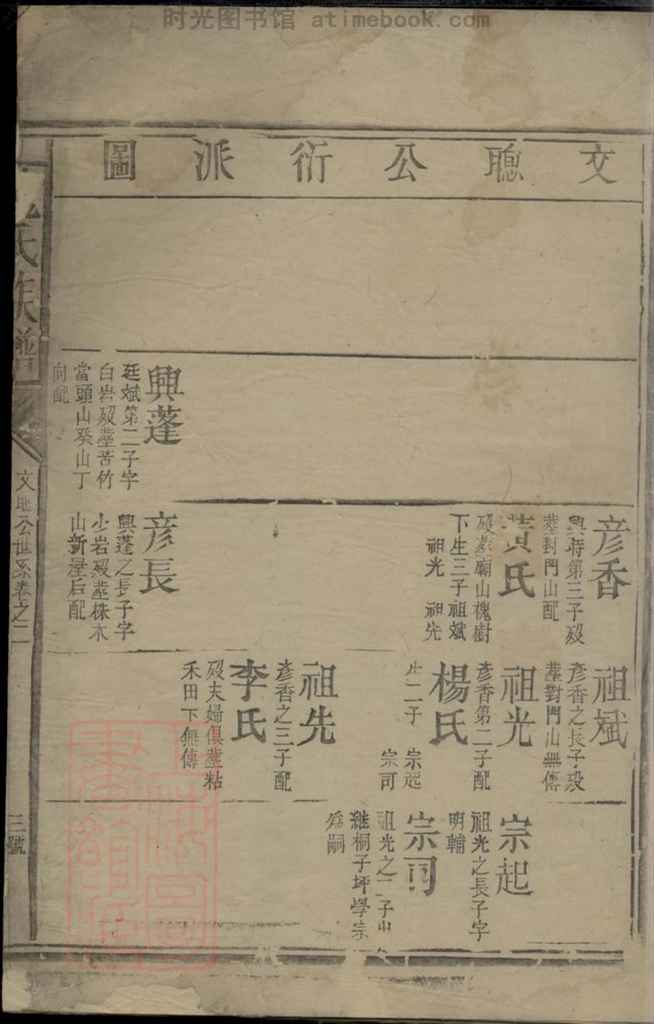 时光图书馆 atimebook.com
文聰公衍派圖
興蓬
廷斌第二子字
白岩殁塟苦竹
當頭山癸山丁
向配
彦香
興特第三子殁
塟對門山配
黄氏
殁塟廟山槐樹
下生三子祖斌
祖光 祖先
彦長
興蓬之長子字
少岩殁塟株木
山新屋后配
祖斌
彦香之長子殁
塟對門山無傳
祖光
彦香第二子配
楊氏
生二子 宗起
宗司
祖先
彦香之三子配
李氏
殁夫婦俱塟粘
禾田下無傳
宗起
祖光之長子字
明輔
宗司
祖光之二子出
継桐子坪學宗
為嗣
氏族譜
文聰公世系卷之二
三號